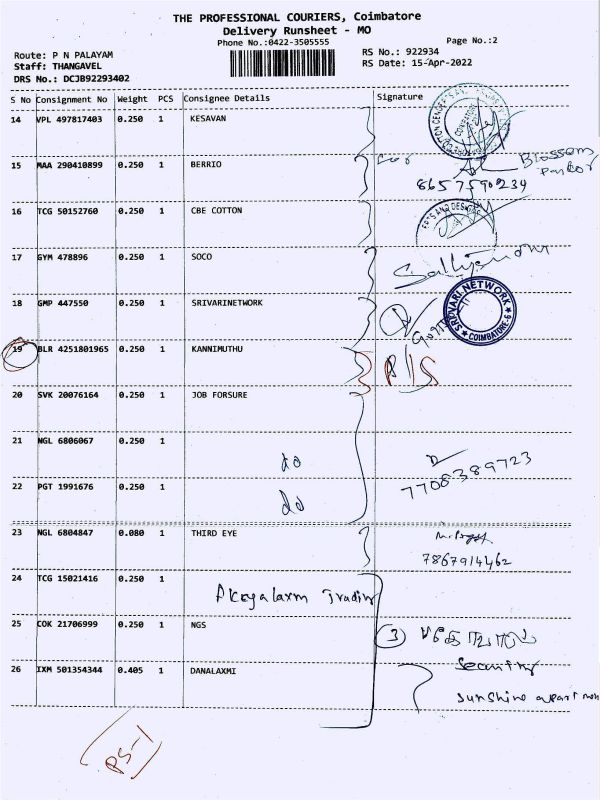 THE PROFESSIONAL COURIERS, Coimbatore
Delivery Runsheet - MO
Phone No.:0422-3505555
Page No.:2
Route: P N PALAYAM
RS No.: 922934
Staff: THANGAVEL
RS Date: 15-Apr-2022
DRS No.: DCJB92293402
S No Consignment No Weight PCS Consignee Details Signature
14 VPL 497817403 0.250 1 KESAVAN
15 MAA 290410899 0.250 1 BERRIO
Blossom
8657590234
16 TCG 50152760 0.250 1 CBE COTTON
17 GYM 478896 0.250 1 SOCO
18 GMP 447550 0.250 1 SRIVARINETWORK
SRIVARI NETWORK
COIMBATORE-6
19 BLR 4251801965 0.250 1 KANNIMUTHU
20 SVK 20076164 0.250 1 JOB FORSURE
21 NGL 6806067 0.250 1 do
7708389723
22 PGT 1991676 0.250 1 do
23 NGL 6804847 0.080 1 THIRD EYE
7867914462
24 TCG 15021416 0.250 1
25 COK 21706999 0.250 1 NGS
3
Security
26 IXM 501354344 0.405 1 DANALAXMI
sunshine